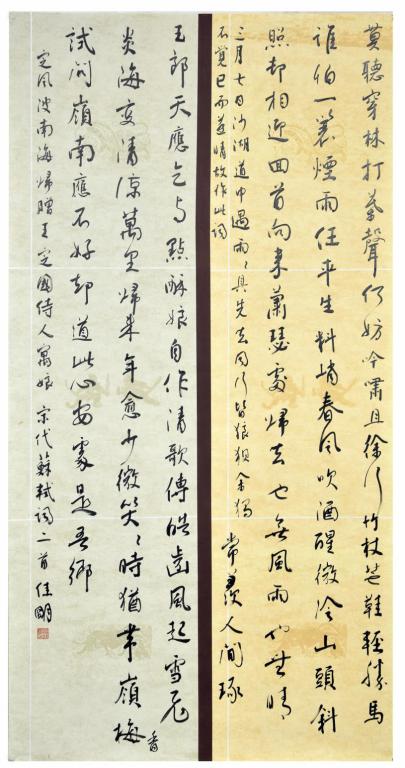 莫聽穿林打葉聲何妨吟嘯且徐行竹杖芒鞋輕勝馬
誰怕一蓑煙雨任平生料峭春風吹酒醒微冷山頭斜
照却相迎回首向來蕭瑟處歸去也無風雨也無晴
三月七日沙湖道中遇雨〻具先去同行皆狼狽余獨
不覺已而遂晴故作此詞
常羨人間琢
玉郎天應乞與點酥娘自作清歌傳皓齒風起雪飛
炎海變清涼萬里歸來年愈少微笑〻時猶帶嶺梅香
試問嶺南應不好却道此心安處是吾鄉
定風波南海歸贈王定國侍人寓娘 宋代蘇軾詞二首佳明